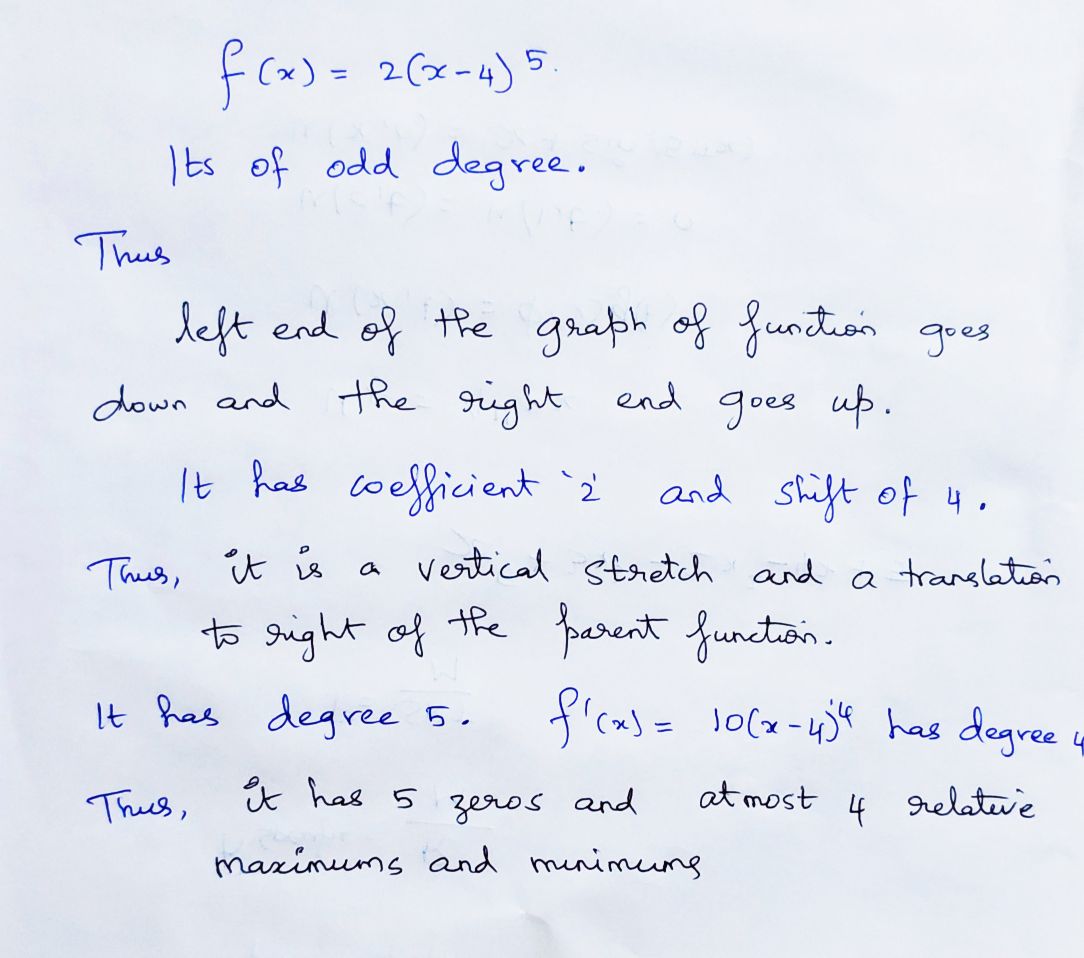 f(x) = 2(x-4)⁵.
Its of odd degree.
Thus
left end of the graph of function goes
down and the right end goes up.
It has coefficient '2' and shift of 4.
Thus, it is a vertical stretch and a translation
to right of the parent function.
It has degree 5. f'(x) = 10(x-4)⁴ has degree 4
Thus, it has 5 zeros and atmost 4 relative
maximums and minimums